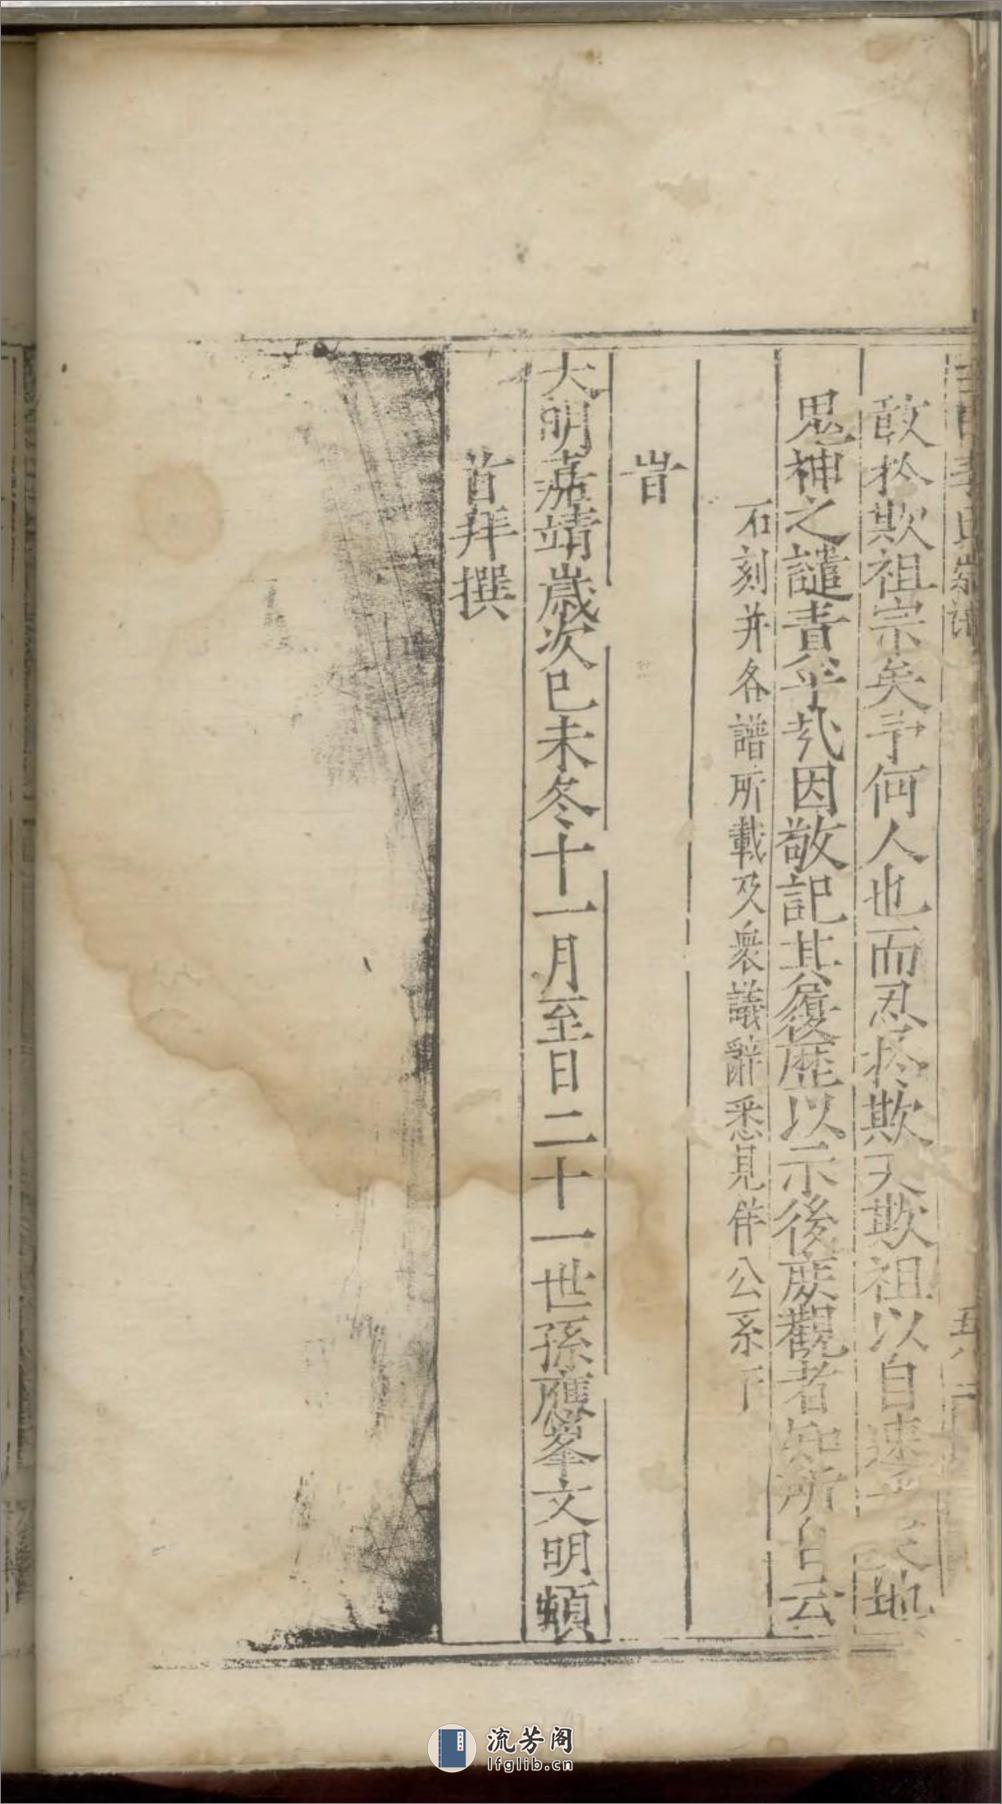 三田李氏宗譜
敢於欺祖宗矣予何人也而忍於欺天欺祖以自速天地
鬼神之譴責乎哉因敬記其履歷以示後庻觀者知所自云
石刻并各譜所載及衆議辭悉見伴公系下
旹
大明嘉靖歲次己未冬十一月至日二十一世孫應峯文明頓
首拜撰
流芳阁
lfglib.cn